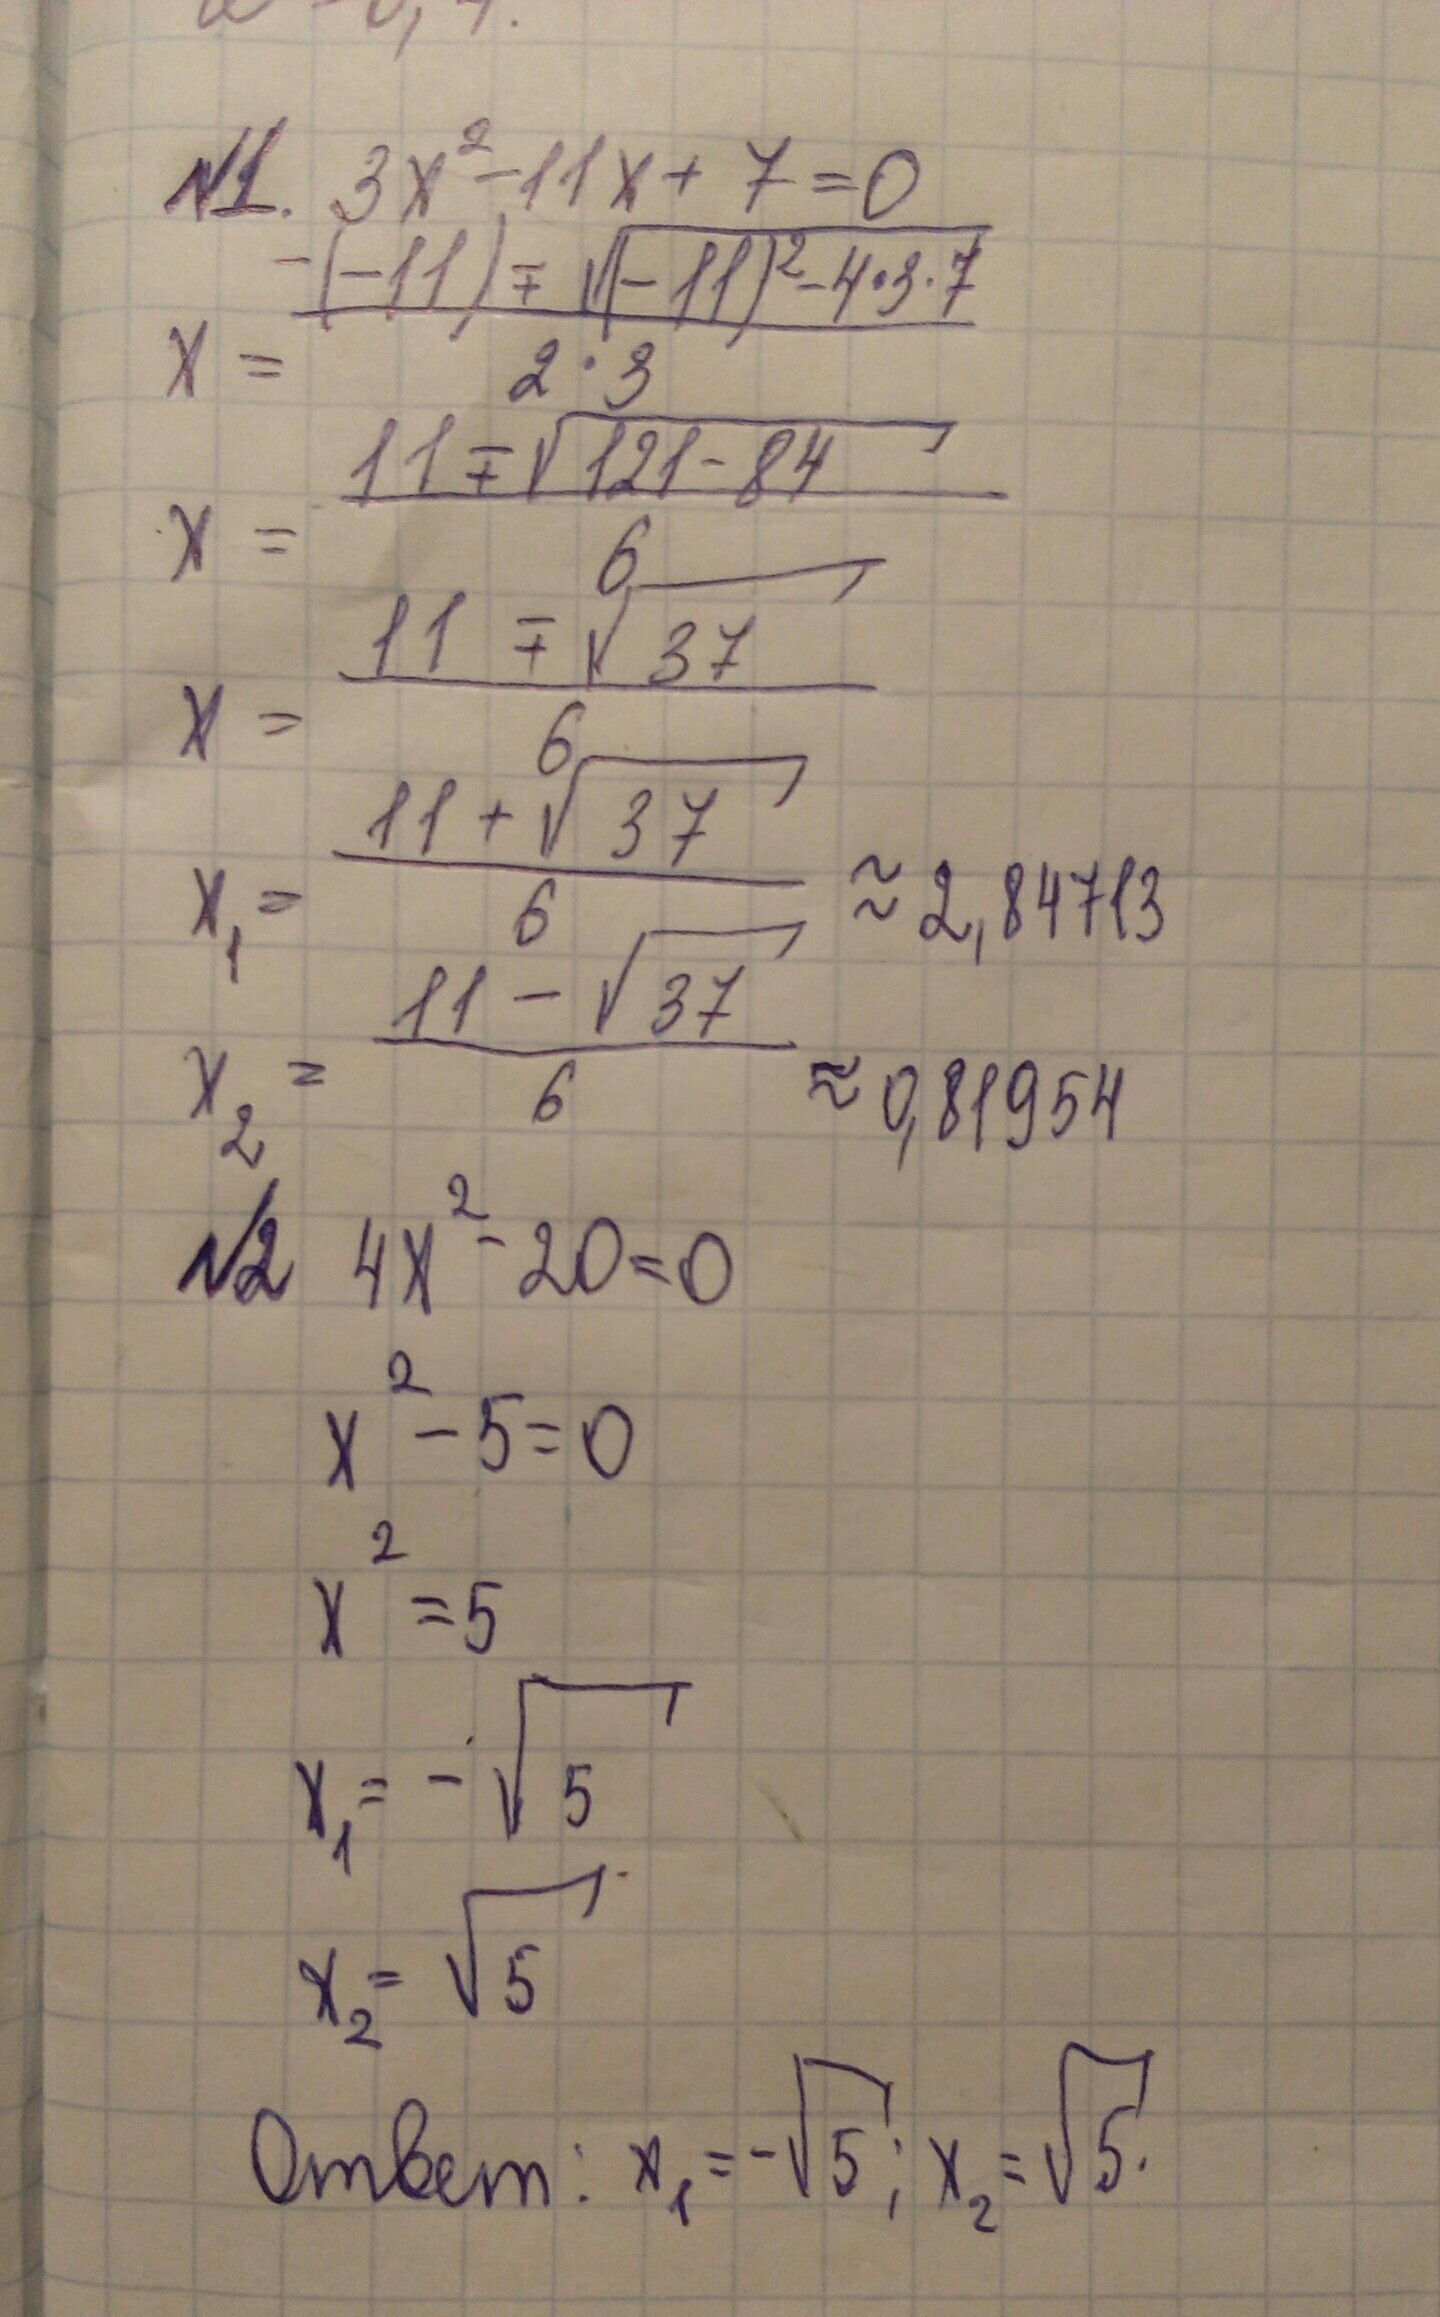 №1. 3x² - 11x + 7 = 0
x = (-(-11) ∓ √((-11)² - 4·3·7)) / (2·3)
x = (11 ∓ √(121 - 84)) / 6
x = (11 ∓ √37) / 6
x₁ = (11 + √37) / 6 ≈ 2,84713
x₂ = (11 - √37) / 6 ≈ 0,81954
№2 4x² - 20 = 0
x² - 5 = 0
x² = 5
x₁ = -√5
x₂ = √5
Ответ: x₁ = -√5; x₂ = √5.